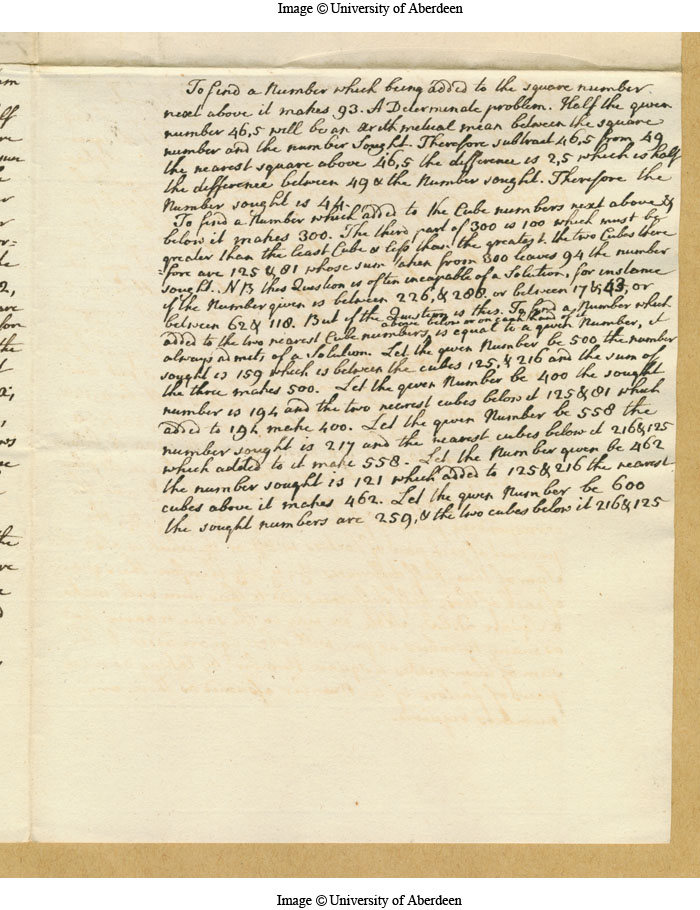 Image © University of Aberdeen
To find a Number which being added to the square number
next above it makes 93. A Determinate problem. Half the given
number 46,5 will be an arithmetical mean between the square
number and the number Sought. Therefore subtract 46,5 from 49
the nearest square above 46,5 the difference is 2,5 which is half
the difference between 49 & the Number sought. Therefore the
Number sought is 44.
To find a Number which added to the Cube numbers next above &
below it makes 300. The third part of 300 is 100 which must be
greater than the least Cube & less than the greatest. the two Cubes there
=fore are 125 & 81 whose sum taken from 300 leaves 94 the number
sought. NB this Question is often incapable of a Solution, for instance
if the Number given is between 226, & 288 or between 17 & 43, or
between 62 & 118. But if the Question is this. To find a Number which
above below or on each hand of it
added to the two nearest Cube numbers, is equal to a given Number, it
always admits of a solution. Let the given Number be 500 the number
sought is 159 which is between the cubes 125, & 216 and the sum of
the three makes 500. Let the given Number be 400 the sought
number is 194 and the two nearest cubes below it 125 & 81 which
added to 194 make 400. Let the given Number be 558 the
number sought is 217 and the nearest cubes below it 216 & 125
which added to it make 558. Let the Number given be 462
the number sought is 121 which added to 125 & 216 the nearest
cubes above it makes 462. Let the given Number be 600
the sought numbers are 259, & the two cubes below it 216 & 125
Image © University of Aberdeen